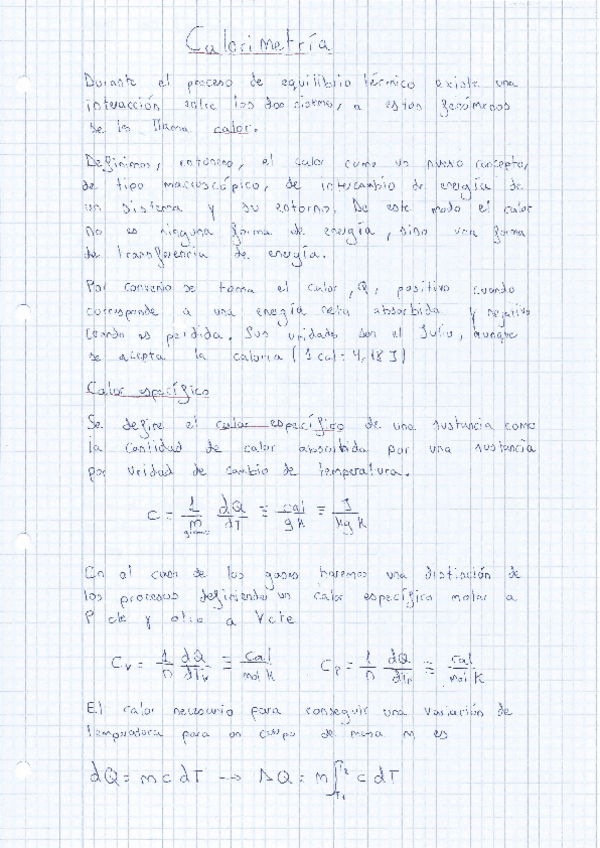 Calorimetría
Durante el proceso de equilibrio térmico existe una
interacción entre los dos sistemas, a estos fenómenos
se les llama calor.
Definimos, entonces, el calor como un nuevo concepto,
de tipo macroscópico, de intercambio de energía de
un sistema y su entorno. De este modo el calor
no es ninguna forma de energía, sino una forma
de transferencia de energía.
Por convenio se toma el calor, Q, positivo cuando
corresponde a una energía neta absorbida y negativo
cuando es perdida. Sus unidades son el Julio, aunque
se acepta la caloría (1 cal = 4,18 J)
Calor específico
Se define el calor específico de una sustancia como
la cantidad de calor absorbida por una sustancia
por unidad de cambio de temperatura.
c = 1/m dQ/dT ≡ cal/g K ≡ J/kg K
En el caso de los gases haremos una distinción de
los procesos definiendo un calor específico molar a
P cte y otro a V cte
Cv = 1/n dQ/dTv ≡ cal/mol K    Cp = 1/n dQ/dTp ≡ cal/mol K
El calor necesario para conseguir una variación de
temperatura para un cuerpo de masa m es
dQ = m c dT → ΔQ = m ∫T1T2 c dT